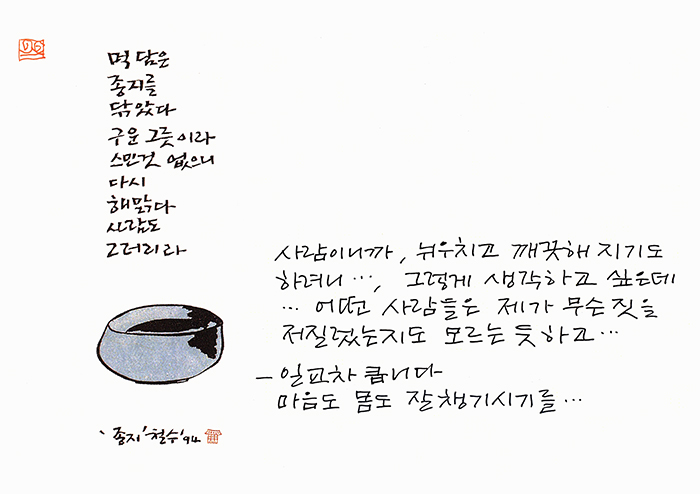 먹 담은
종지를
닦았다
구운 그릇이라
스민것 없으니
다시
해맑다
사람도
그러리라
사람이니까, 뉘우치고 깨끗해 지기도
하려니…, 그렇게 생각하고 싶은데
… 어떤 사람들은 제가 무슨 짓을
저질렀는지도 모르는 듯 하고…
– 일교차 큽니다
마음도 몸도 잘 챙기시기를…
' 종지 ' 철수 '94